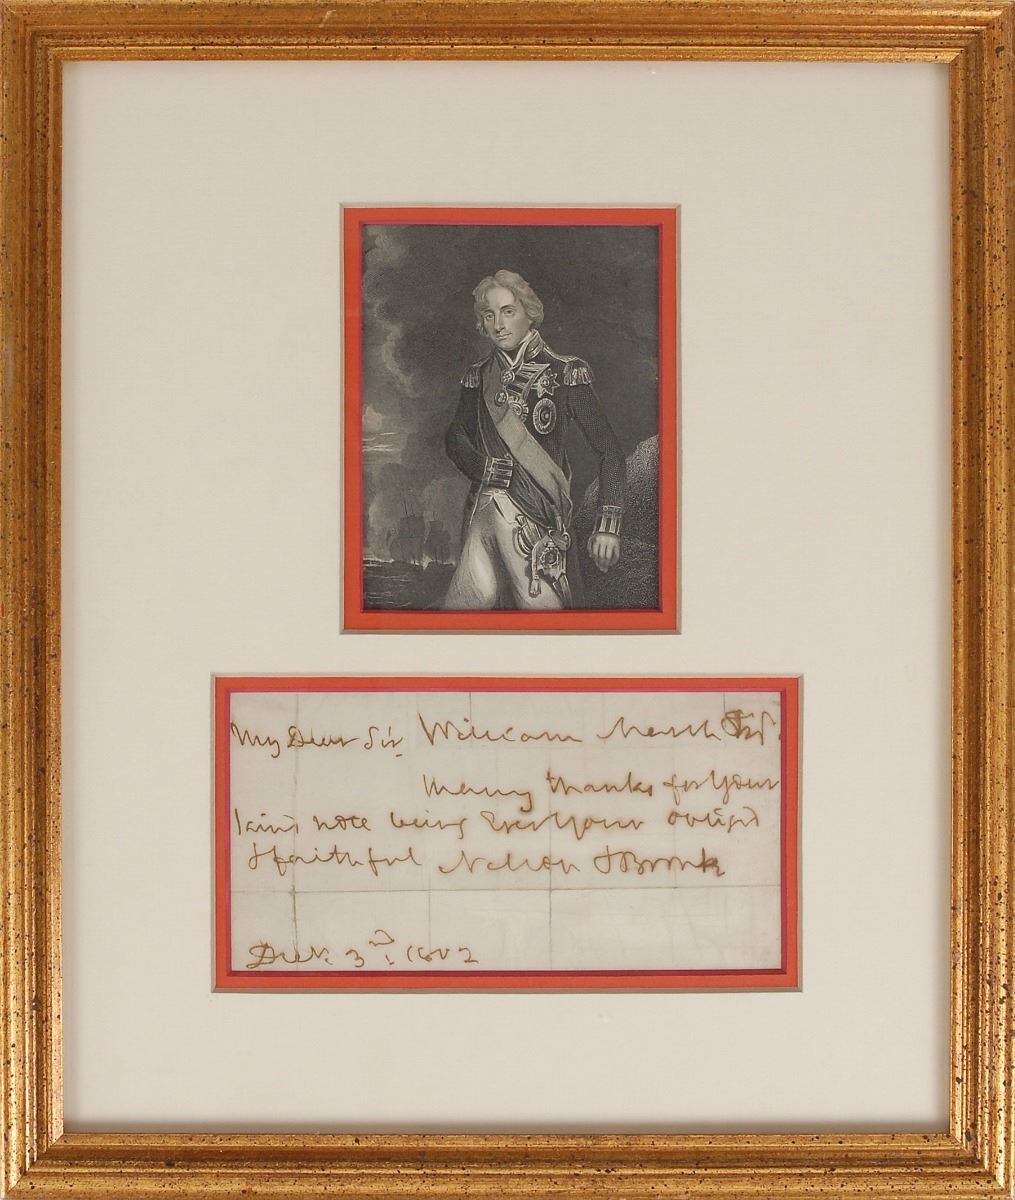 My Dear Sir William Marsh Esqr.
Many thanks for Your
kind note being Ever Your obliged
& faithful Nelson & Bronte
3rd: 1802